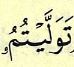 تَوَلَّيْتُمُۥ